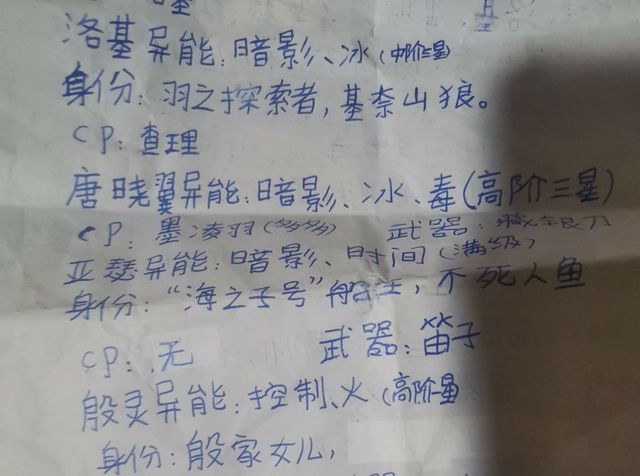 洛基异能：暗影、冰（中阶三星）
身份：羽之探索者，基奈山狼。
CP：查理
唐晓翼异能：暗影、冰、毒（高阶三星）
CP：墨凌羽（多多） 武器：藏银刀
亚瑟异能：暗影、时间（满级）
身份：“海之子号”船主，不死人鱼
CP：无 武器：笛子
殷灵异能：控制、火（高阶一星
身份：殷家女儿，